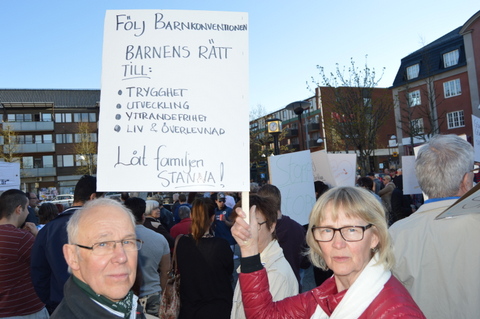 Följ BARNKONVENTIONEN
BARNENS RÄTT
TILL:
• TRYGGHET
• UTVECKLING
• YTTRANDEFRIHET
• LIV & ÖVERLEVNAD
Låt familjen
STANNA!